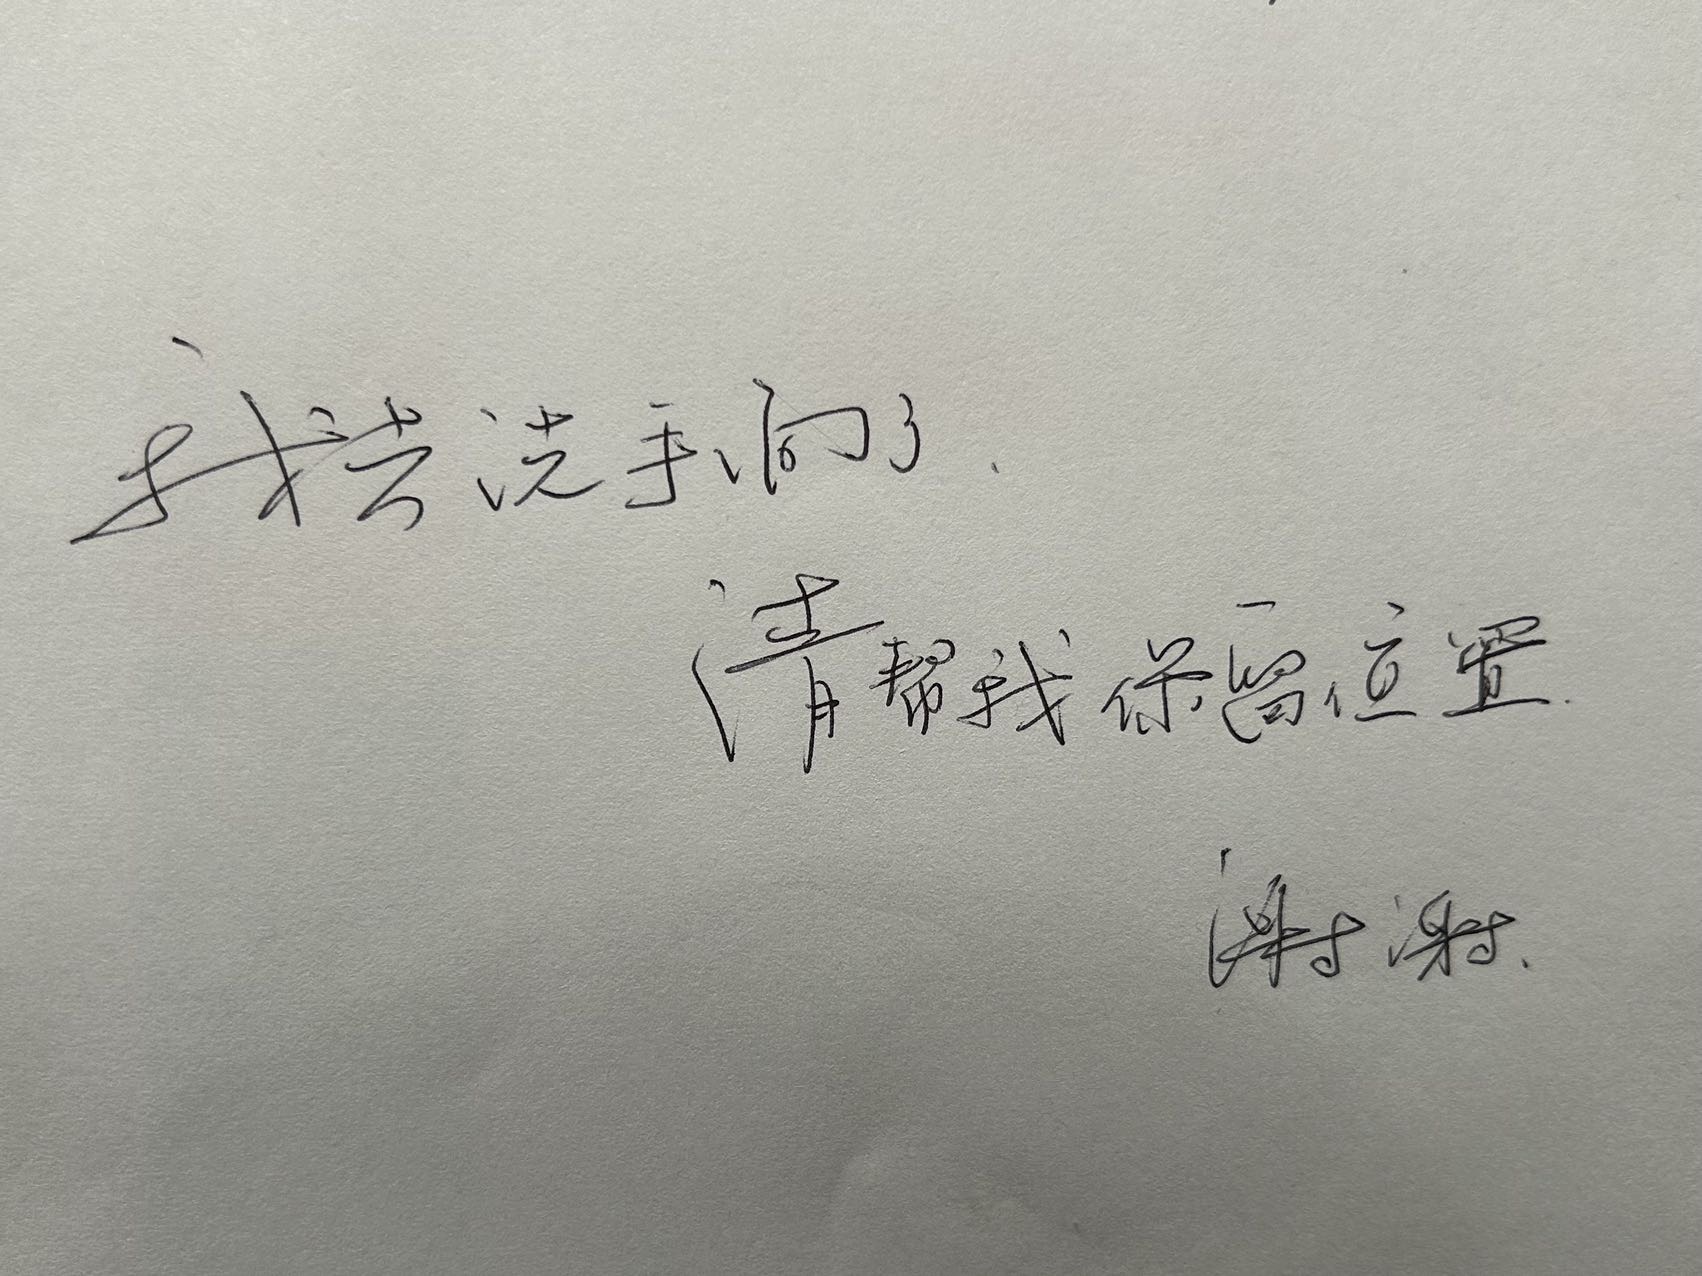 我去洗手间了.
请帮我保留位置.
谢谢.